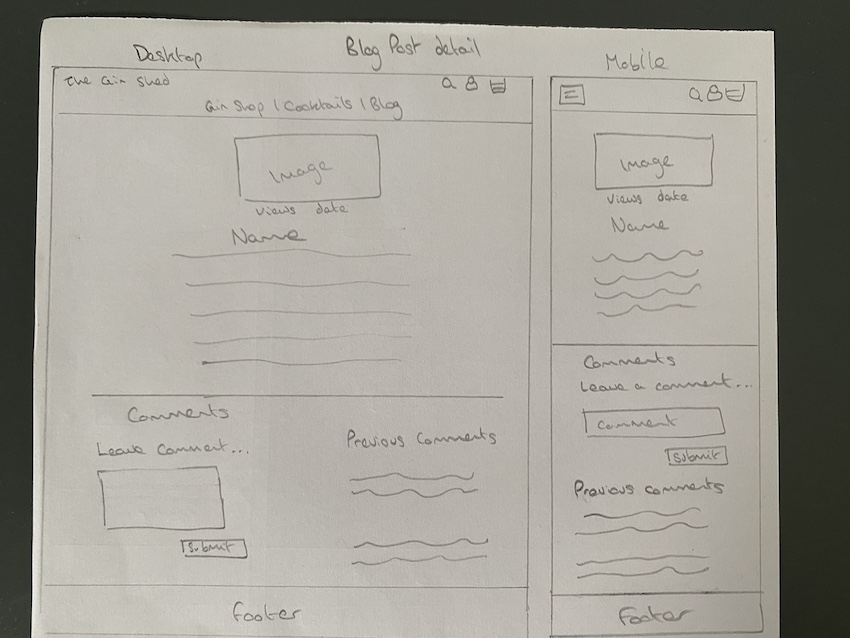 Blog Post detail
Desktop
The Gin Shed
Gin Shop | Cocktails | Blog
Image
views date
Name
Comments
Leave Comment...
Submit
Previous Comments
footer
Mobile
Image
views date
Name
Comments
Leave a comment...
Comment
Submit
Previous comments
footer